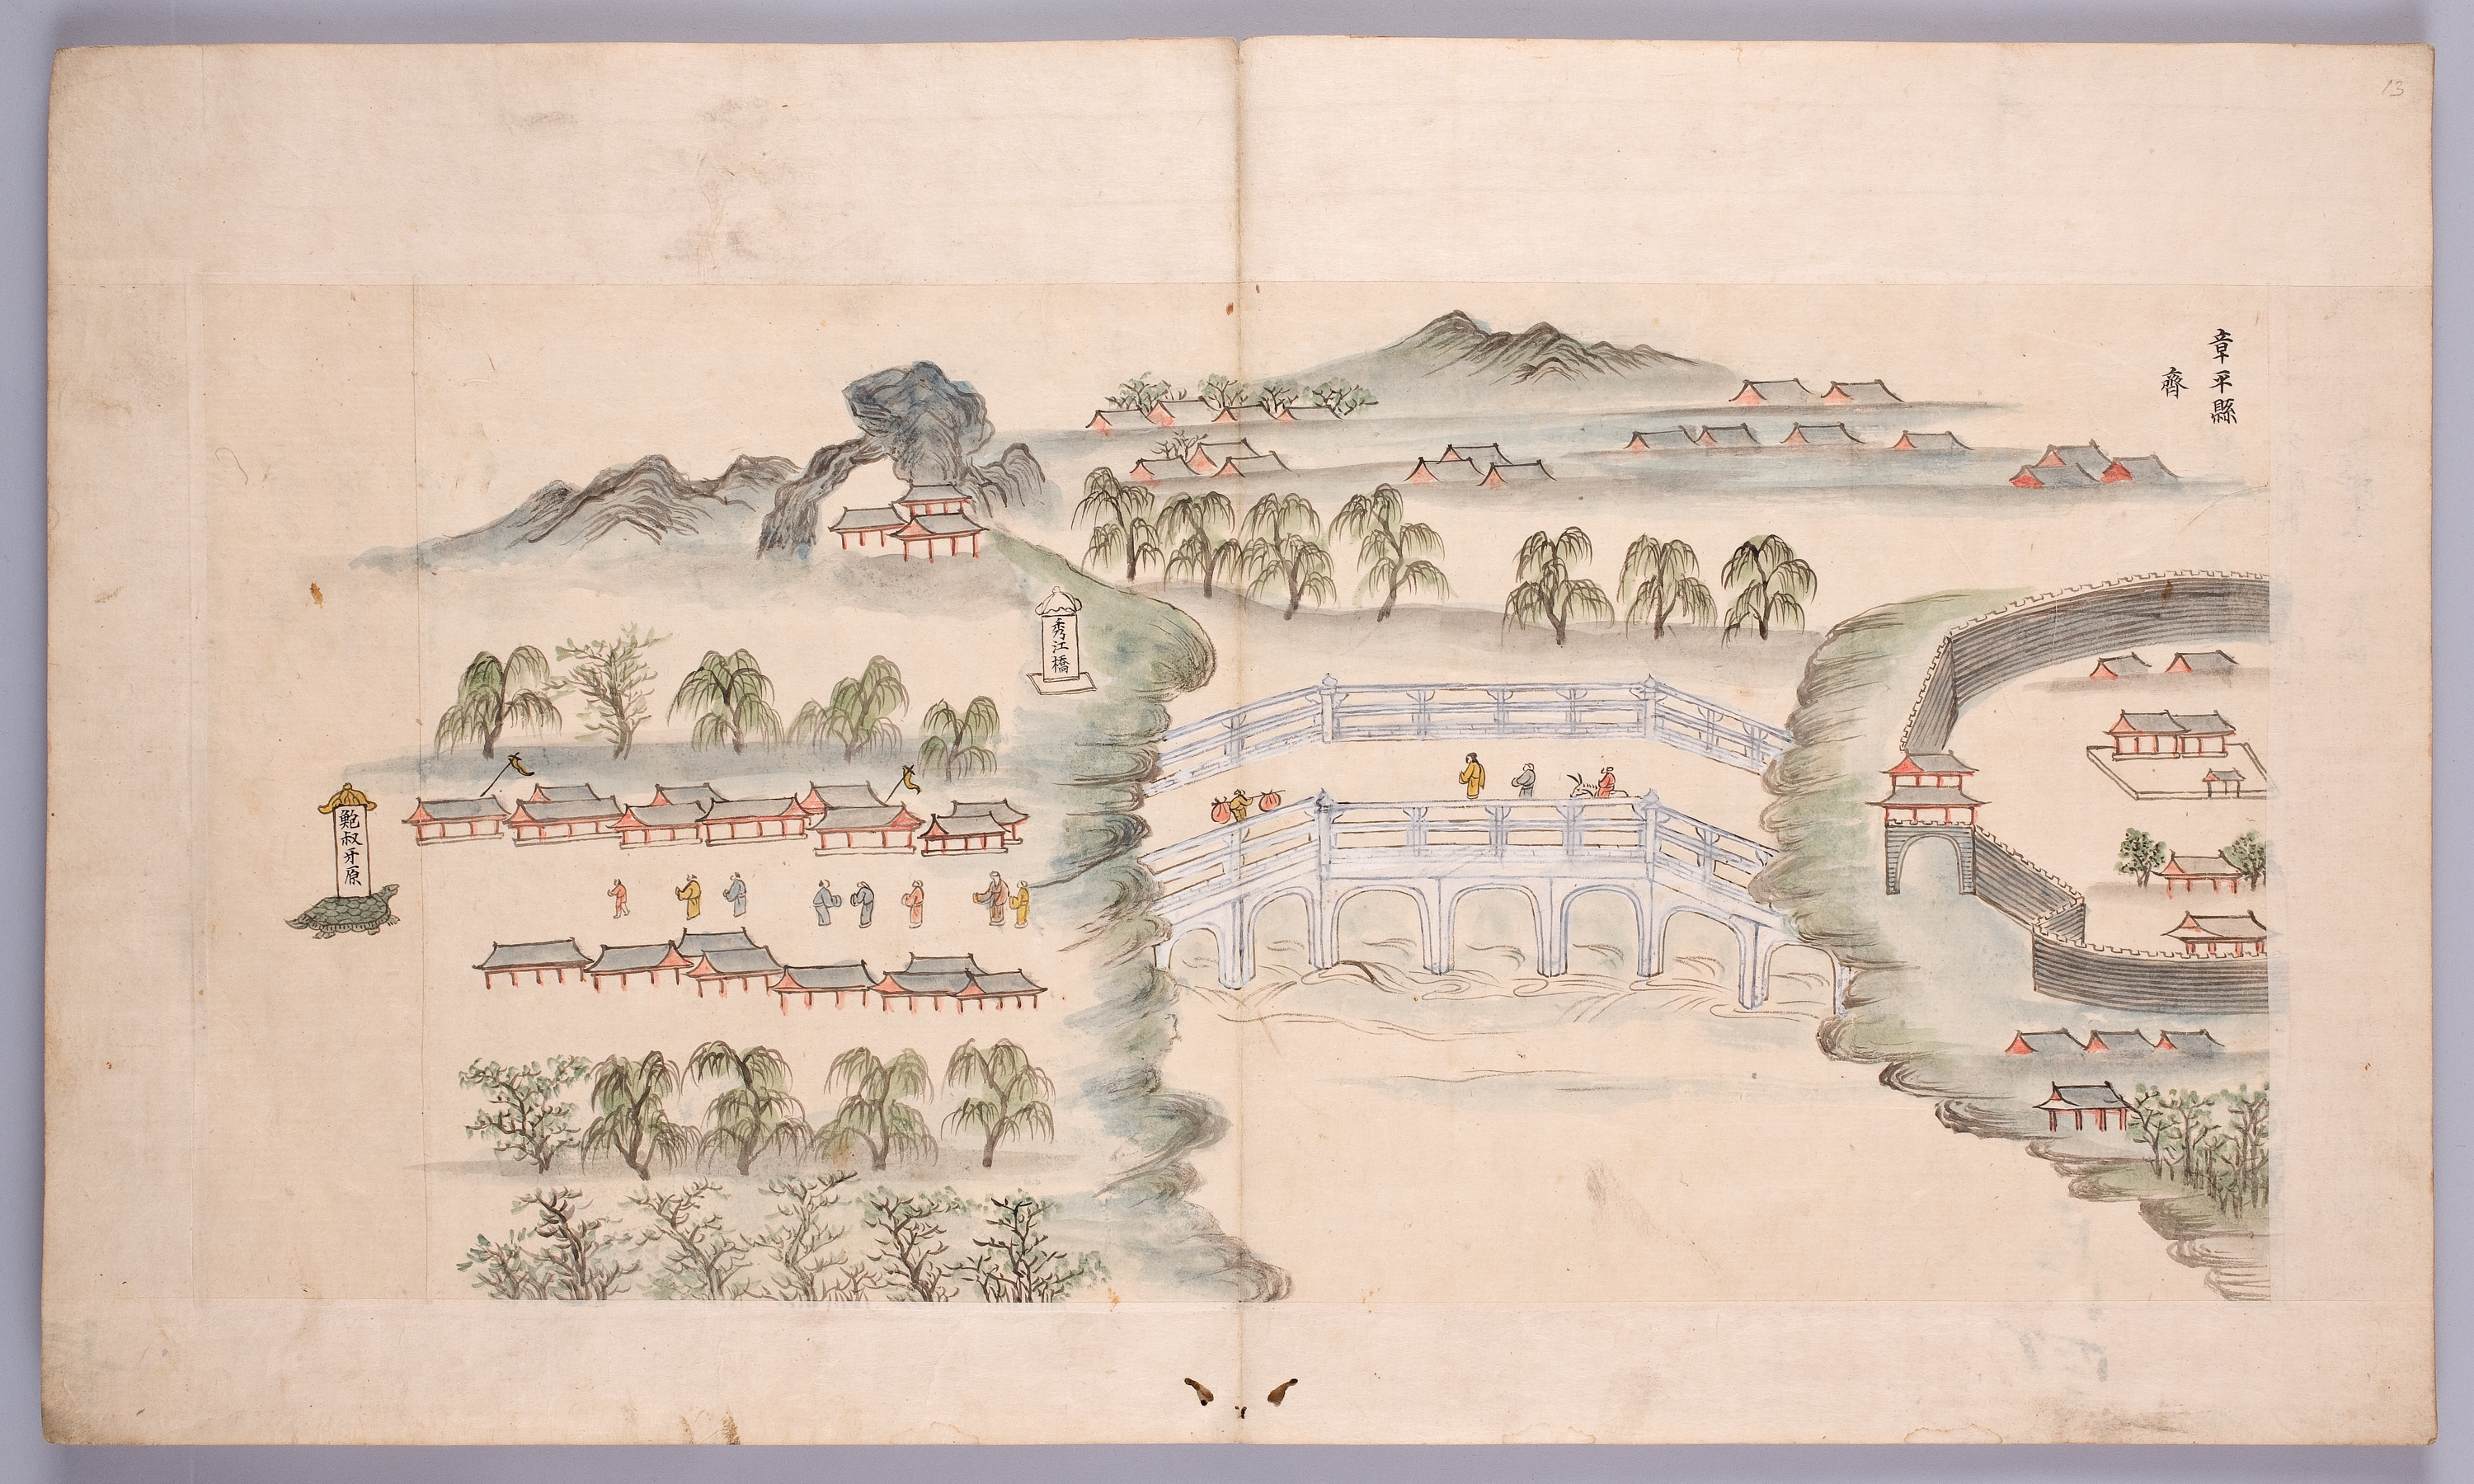 13
章平縣
齊
秀江橋
鮑叔牙原